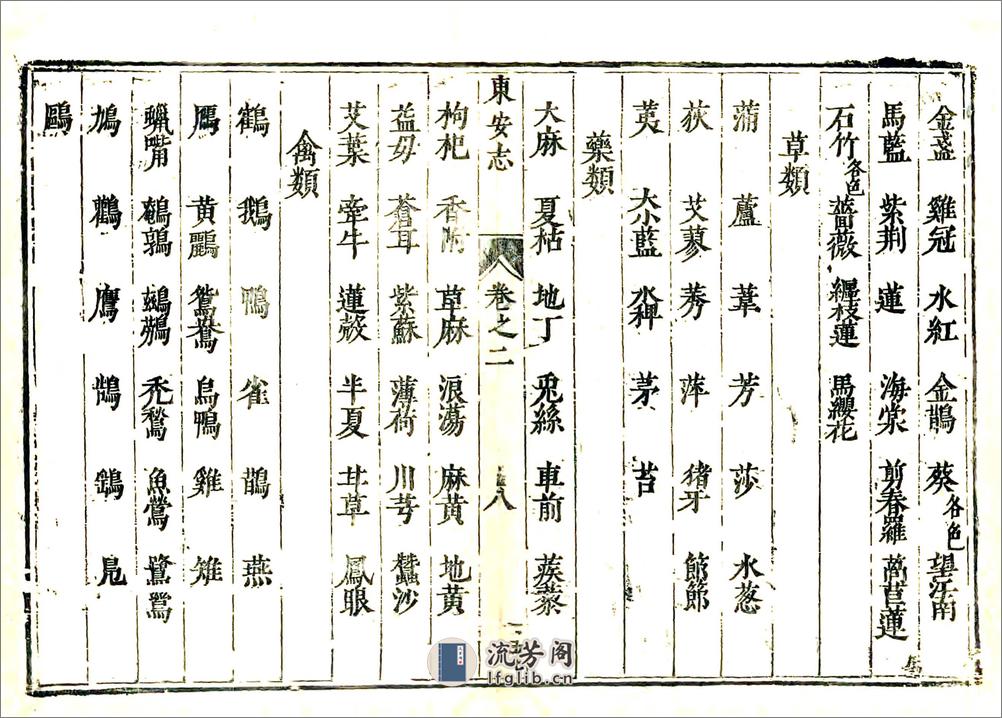 金盞 雞冠 水紅 金鵲 葵各色 望江南
馬藍 紫荆 蓮 海棠 剪春羅 萵苣蓮
石竹各色 薔薇 纒枝蓮 馬纓花
草類
蒲 蘆 葦 芳 莎 水葱
荻 艾蓼 莠 萍 猪牙 節節
荑 大小藍 水稗 茅 苔
藥類
大麻 夏枯 地丁 兎絲 車前 蒺藜
東安志 卷之二 八
枸杞 香附 草麻 浪蕩 麻黃 地黃
益毋 蒼耳 紫蘇 薄荷 川芎 蠶沙
艾葉 牽牛 蓮殼 半夏 甘草 鳳眼
禽類
鶴 鵝 鴨 雀 鵲 燕
鴈 黃鸝 鴛鴦 烏鴉 雞 雉
蠟嘴 鵪鶉 鷓鴣 禿鶖 魚鶯 鷺鷥
鳩 鸛 鷹 鶻 鶴 鳬
鷗
流芳阁
lfglib.cn